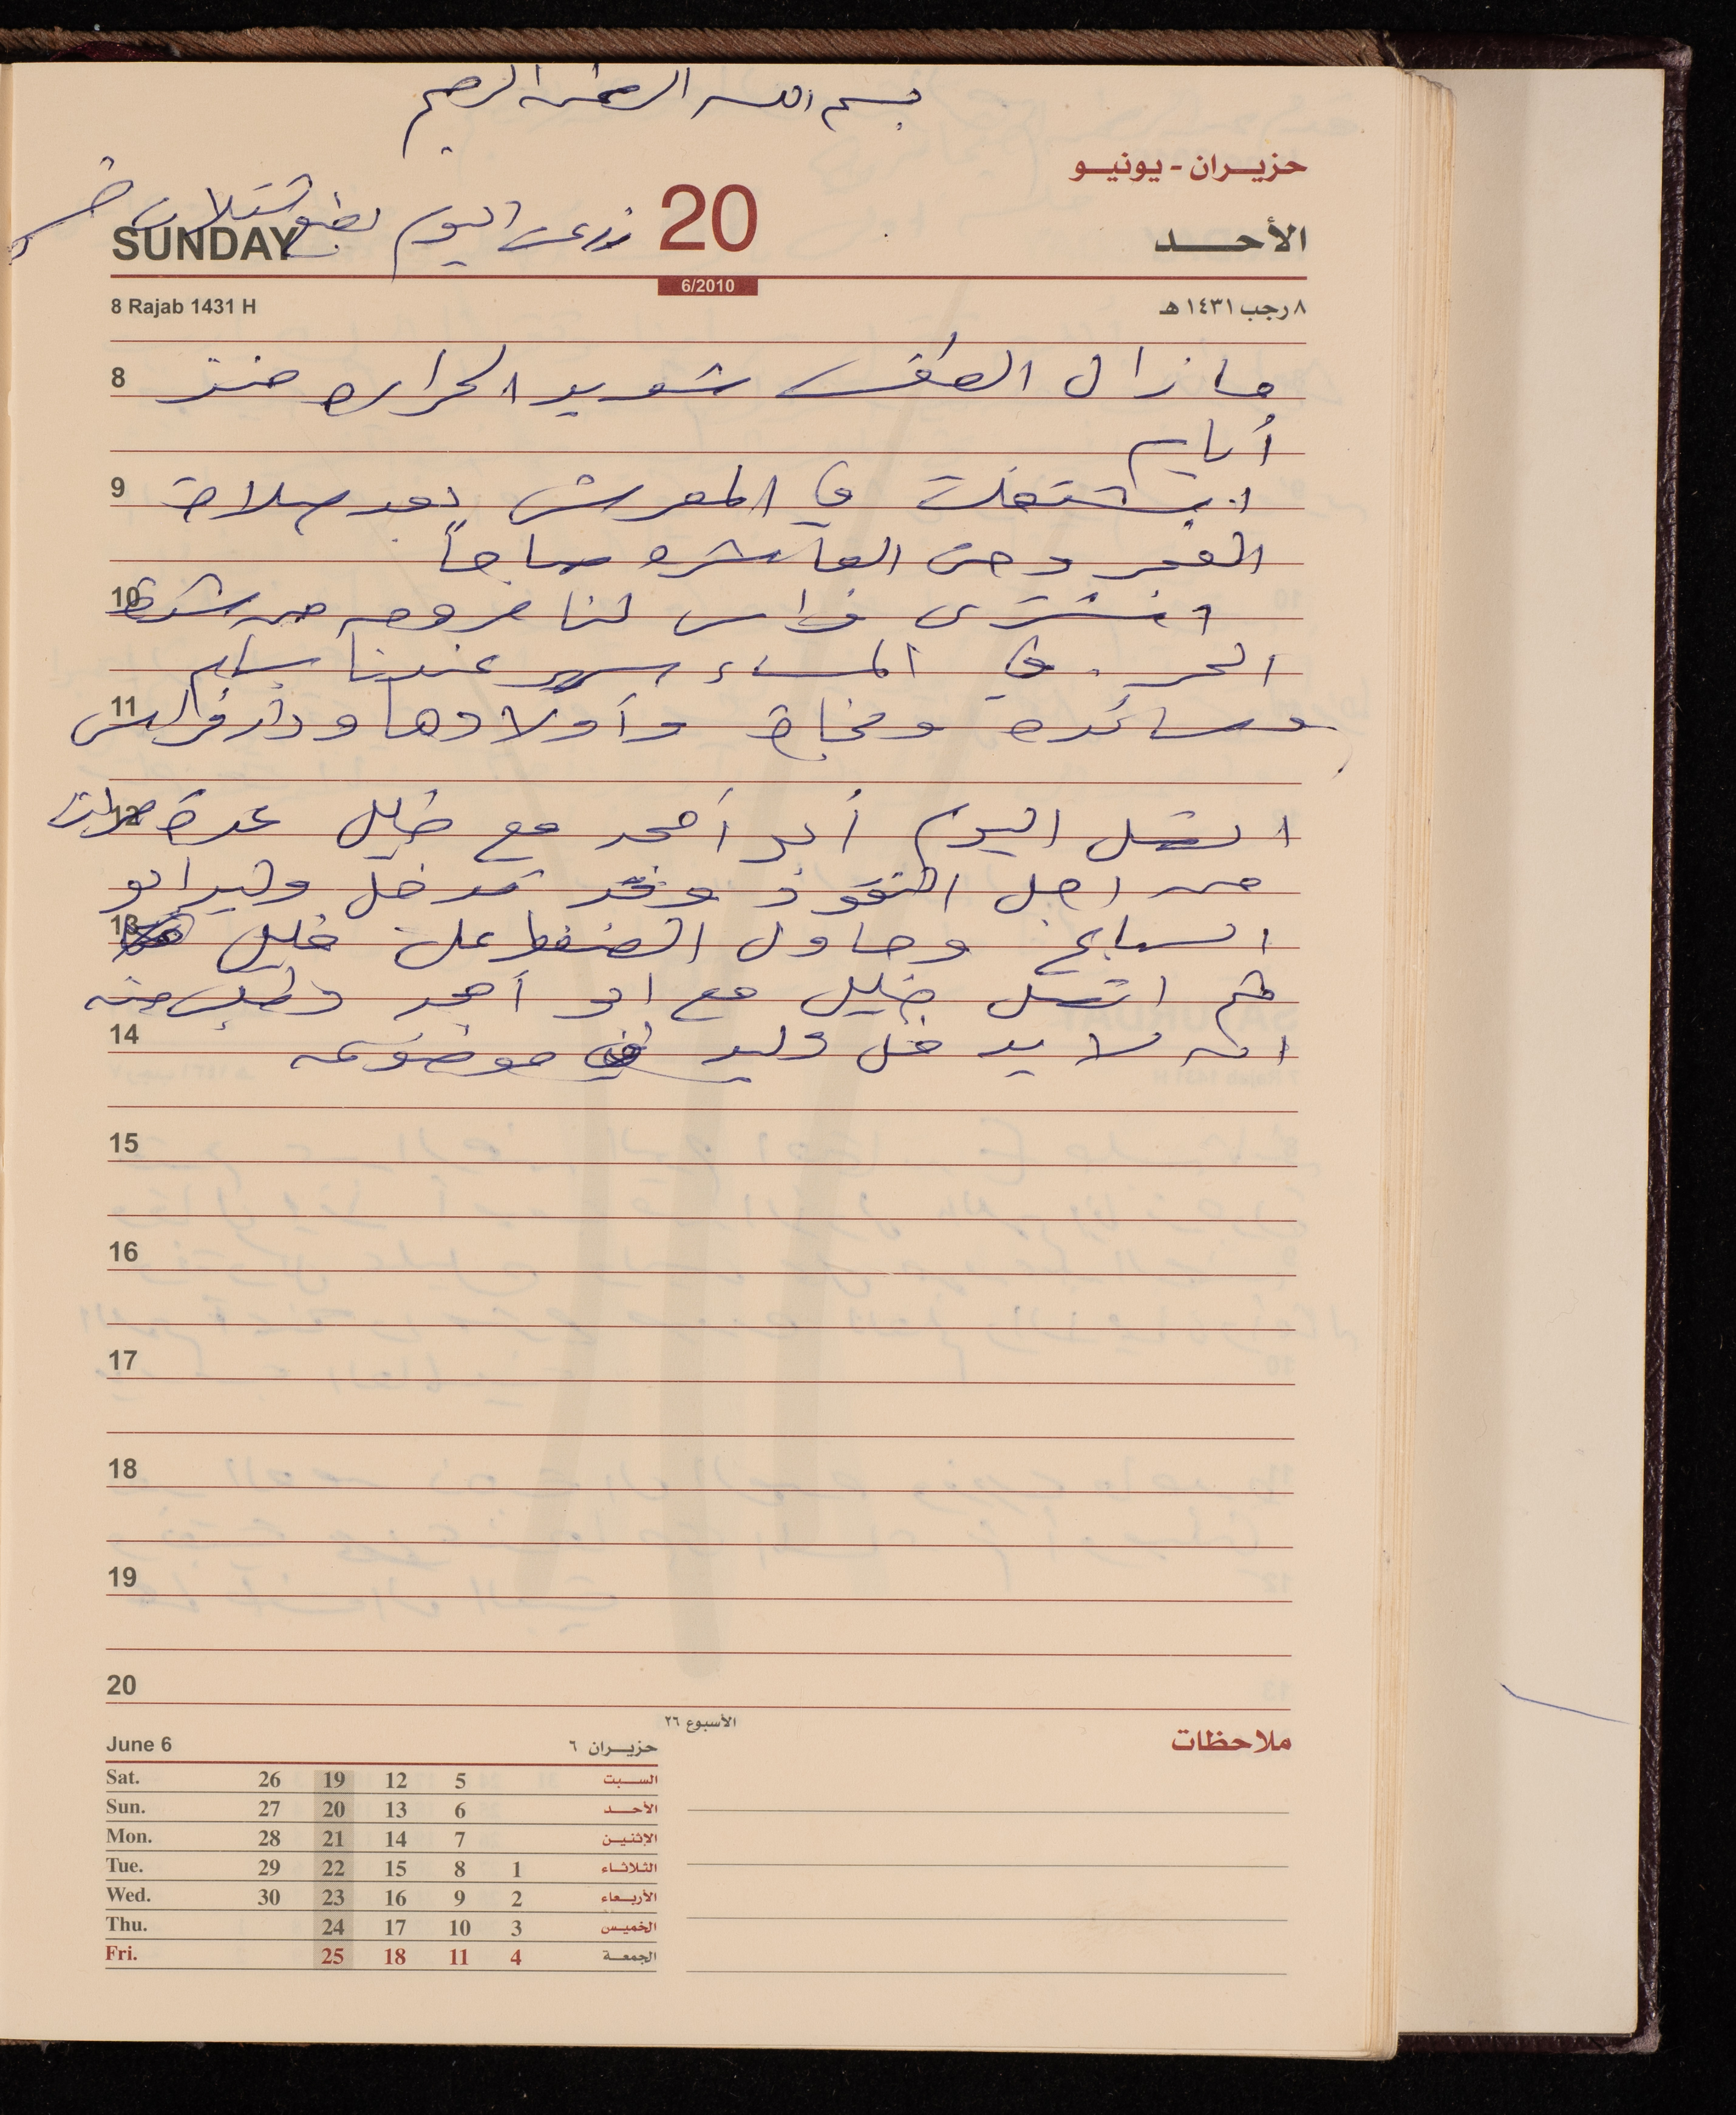 بسم الله الرحمن الرحيم
حزيران - يونيو
زرعت اليوم بضع شتلات
SUNDAY 20 الأحد
6/2010
8 Rajab 1431 H ٨ رجب ١٤٣١ هـ
8 ما زال الطقس شديد الحراره منذ
أيام
9 اشتغلت في المعرش بعد صلاة
الفجر وحتى العاشره صباحاً
10 اشترى فراس لنا مروحه من شدة
الحر. في المساء سهر عندنا سليم
11 وسائده ونجاة وأولادها ودار فراس
12 اتصل اليوم أبو أمجد مع خليل عدة مرات
من اجل النقود وقد تدخل وليد ابو
13 السباع وحاول الضغط على خليل
ثم اتصل خليل مع ابو أمجد وطلب منه
14 ان لا يدخل وليد في موضوعه
15
16
17
18
19
20
الأسبوع ٢٦
ملاحظات
June 6 حزيران ٦
Sat. 26 19 12 5 السبت
Sun. 27 20 13 6 الأحد
Mon. 28 21 14 7 الإثنين
Tue. 29 22 15 8 1 الثلاثاء
Wed. 30 23 16 9 2 الأربعاء
Thu. 24 17 10 3 الخميس
Fri. 25 18 11 4 الجمعة